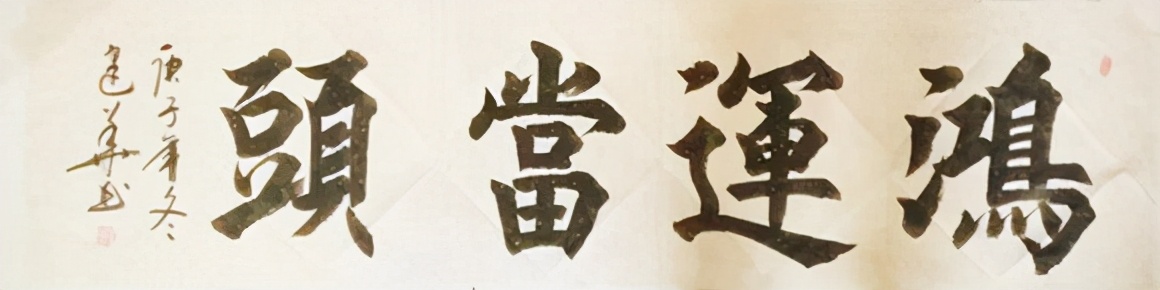 鴻運當頭
庚子年冬